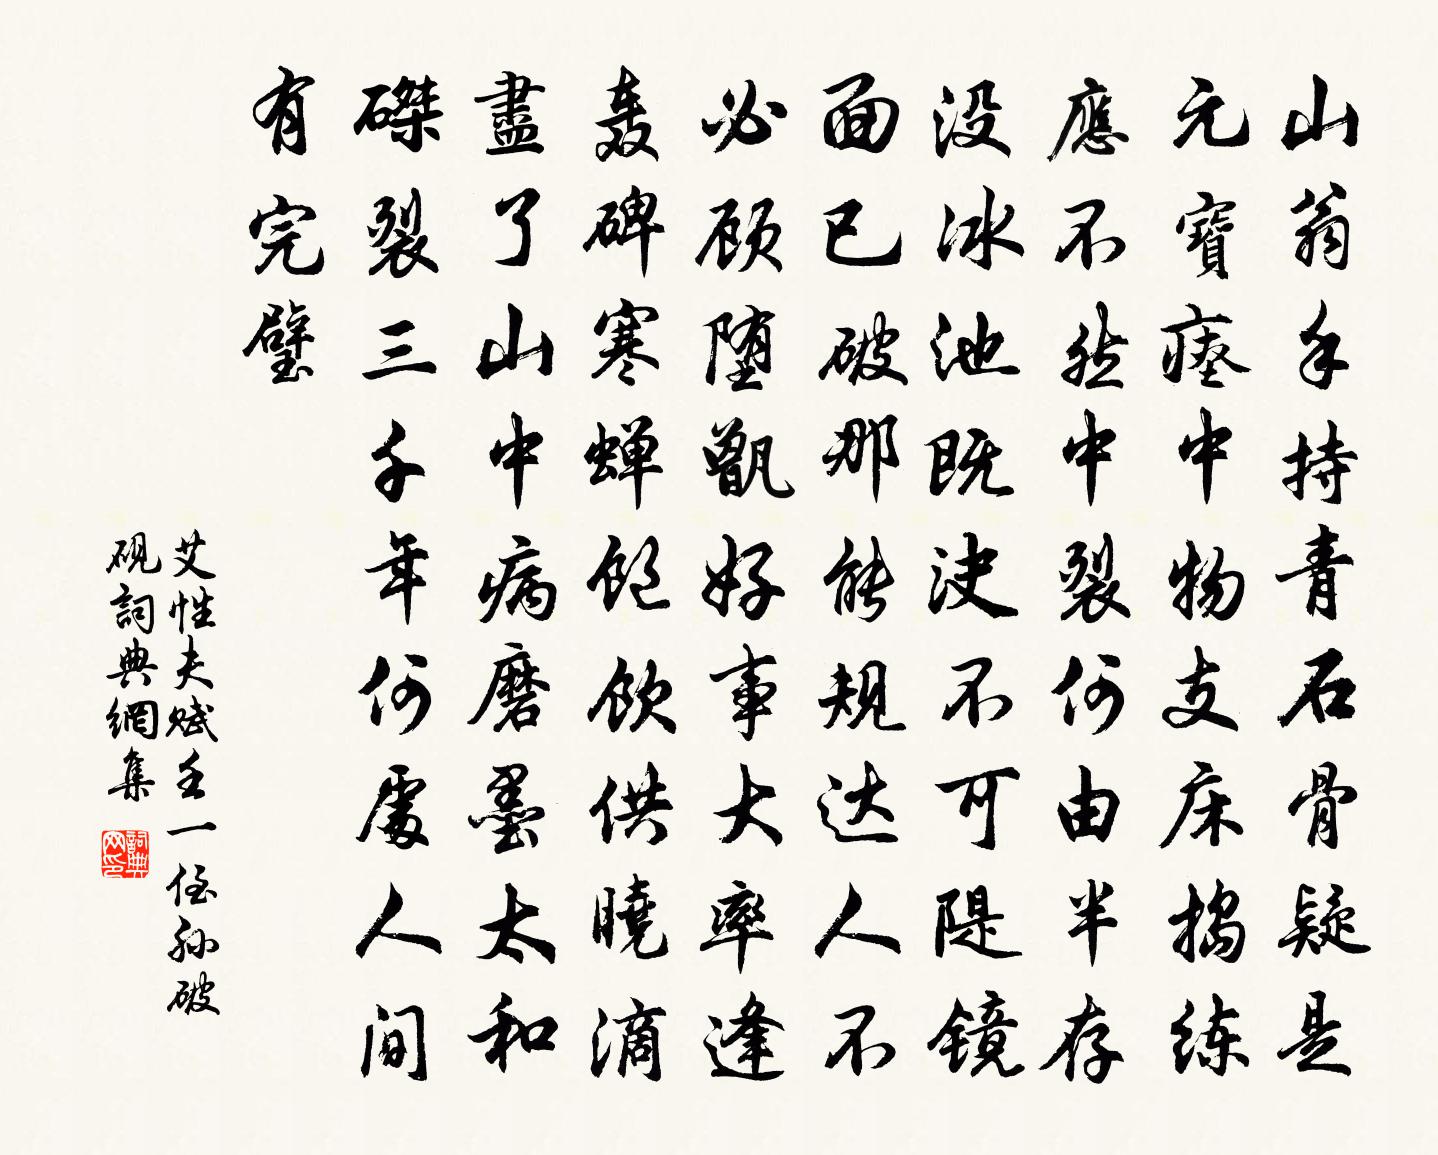 山翁手持青石骨疑是
元寶瘞中物支床搗练
應不然中裂何由半存
没冰池既決不可隄镜
面已破那能規达人不
必顾堕甑好事大率逢
轰碑寒蝉饱飲供曉滴
盡了山中病磨墨太和
磔裂三千年何處人间
有完璧
艾性夫赋王一侄孙破
硯詞典網集
詞典網印